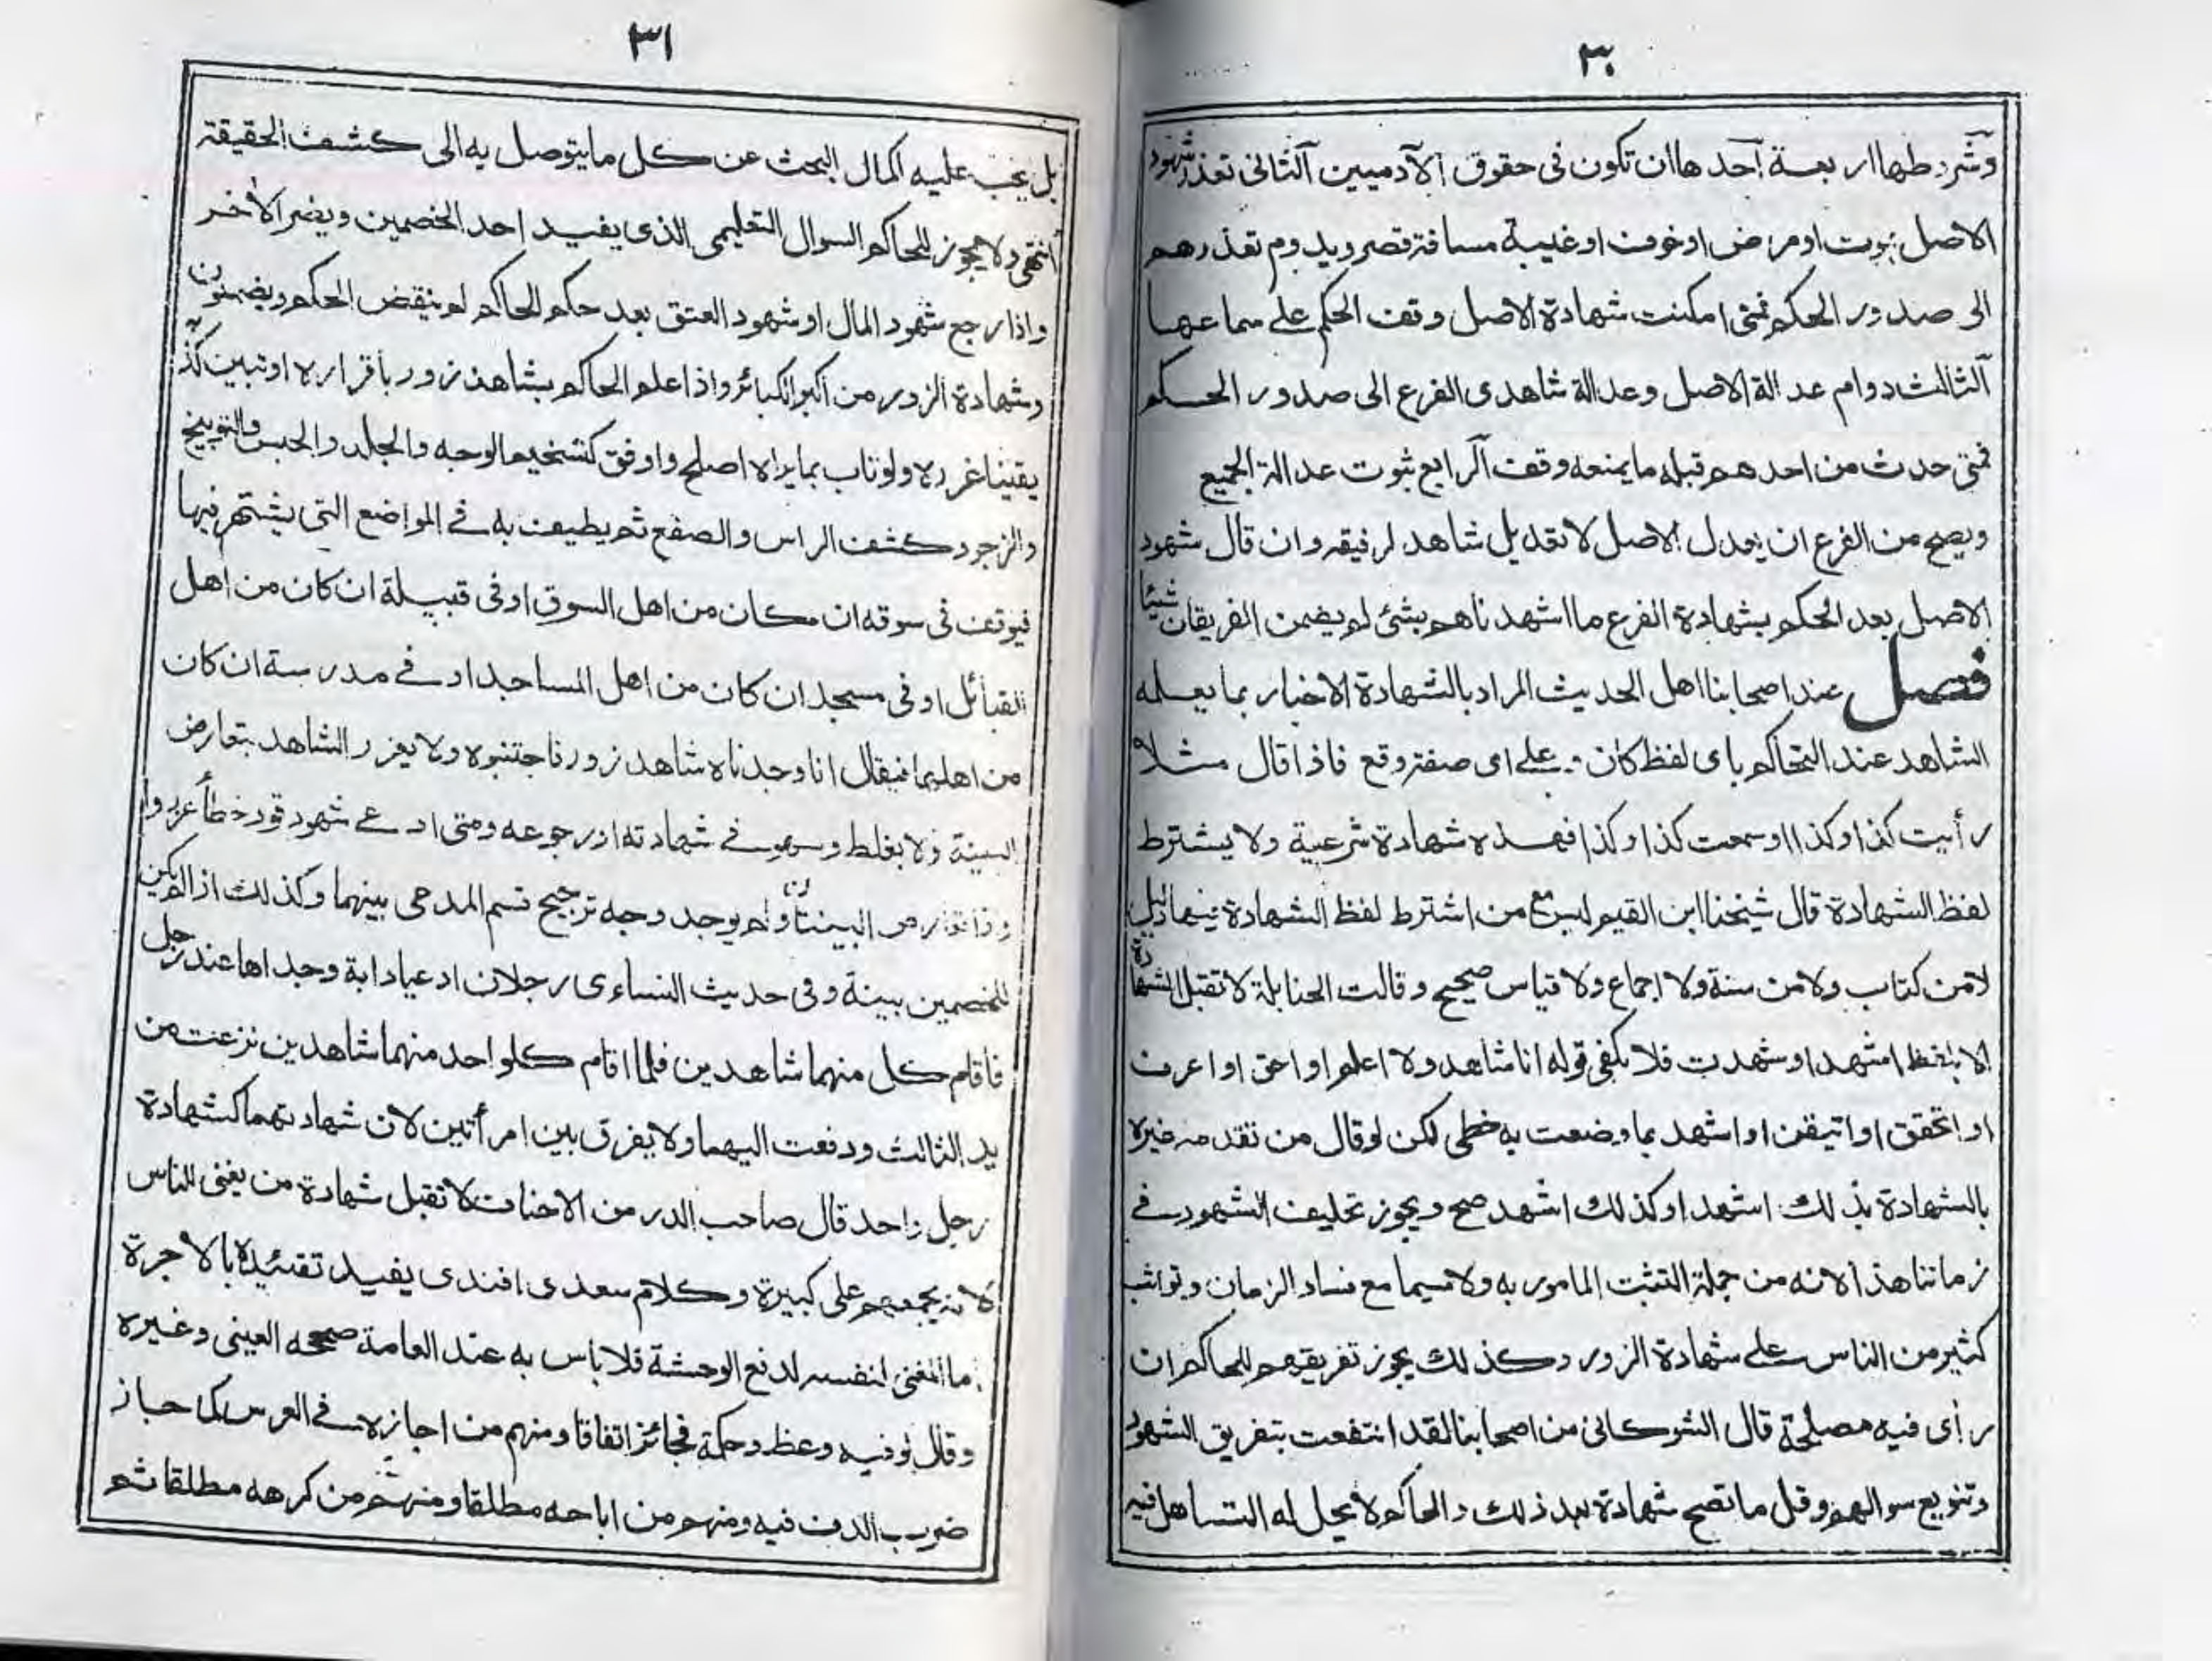 ٣٠
وشروطها اربعة آحدها ان تكون فى حقوق الآدميين آلثانى تعذر شهود
الاصل بموت او مرض او خوف او غيبة مسافة قصر ويدوم تعذرهم
الى صدور الحكم فمتى امكنت شهادة الاصل وقف الحكم على سماعها
آلثالث دوام عدالة الاصل وعدالة شاهدى الفرع الى صدور الحكم
فمتى حدث من احدهم قبله ما يمنعه وقف آلرابع ثبوت عدالة الجميع
ويصح من الفرع ان يعدل الاصل لا تعديل شاهد لرفيقه وان قال شهود
الاصل بعد الحكم بشهادة الفرع ما اشهدناهم بشئ لم يضمن الفريقان شيئا
فصل عند اصحابنا اهل الحديث المراد بالشهادة الاخبار بما يعلمه
الشاهد عند التحاكم باى لفظ كان وعلى اى صفة وقع فاذا قال مثلا
رأيت كذا وكذا او سمعت كذا وكذا فهذه شهادة شرعية ولا يشترط
لفظ الشهادة قال شيخنا ابن القيم ليس مع من اشترط لفظ الشهادة فيها دليل
لا من كتاب ولا من سنة ولا اجماع ولا قياس صحيح وقالت الحنابلة لا تقبل الشهادة
الا بلفظ اشهد او شهدت فلا يكفى قوله انا شاهد ولا اعلم او احق او اعرف
او اتحقق او اتيقن او اشهد بما وضعت به خطى لكن لو قال من تقدمه غيره
بالشهادة بذلك اشهد او كذلك اشهد صح ويجوز تحليف الشهود فى
زماننا هذا لانه من جملة التثبت المامور به ولا سيما مع فساد الزمان وتواثب
كثير من الناس على شهادة الزور وكذلك يجوز تفريقهم للحاكم ان
رأى فيه مصلحة قال الشوكانى من اصحابنا لقد انتفعت بتفريق الشهود
وتنويع سوالهم وقل ما تصح شهادة بعد ذلك والحاكم لا يحل له التساهل فيه
٣١
بل يجب عليه اكمال البحث عن كل ما يتوصل به الى كشف الحقيقة
انتهى ولا يجوز للحاكم السوال التعليمى الذى يفيد احد الخصمين ويضر الاخر
واذا رجع شهود المال او شهود العتق بعد حكم الحاكم لم ينقض الحكم ويضمنون
وشهادة الزور من اكبر الكبائر واذا علم الحاكم بشاهد زور باقراره او تبين كذبه
يقينا عزره ولو تاب بما يراه اصلح واوفق كتسخيم الوجه والجلد والحبس والتوبيخ
والزجر وكشف الراس والصفع ثم يطيف به فى المواضع التى يشتهر فيها
فيوقف فى سوقه ان كان من اهل السوق او فى قبيلة ان كان من اهل
القبائل او فى مسجد ان كان من اهل المساجد او فى مدرسة ان كان
من اهليها فيقال انا وجدناه شاهد زور فاجتنبوه ولا يعزر الشاهد بتعارض
البينة ولا بغلط وسهو فى شهادته او رجوعه ومتى ادعى شهود قود خطأ عزروا
واذا تعارض البينتان ولم يوجد وجه ترجيح قسم المدعى بينهما وكذلك اذا لم يكن
للخصمين بينة وفى حديث النساءى رجلان ادعيا دابة وجداها عند رجل
فاقام كل منهما شاهدين فلما اقام كلواحد منهما شاهدين نزعت من
يد الثالث ودفعت اليهما ولا يفرق بين امرأتين لان شهادتهما كشهادة
رجل واحد قال صاحب الدر من الاحناف لا تقبل شهادة من يغنى للناس
لانه يجمعهم على كبيرة وكلام سعدى افندى يفيد تقئيده بالاجرة
اما المغنى لنفسه لدفع الوحشة فلا باس به عند العامة صححه العينى وغيره
وقال لو فيه وعظ وحكمة فجائز اتفاقا ومنهم من اجازه فى العرس كما جاز
ضرب الدف فيه ومنهم من اباحه مطلقا ومنهم من كرهه مطلقا ثم